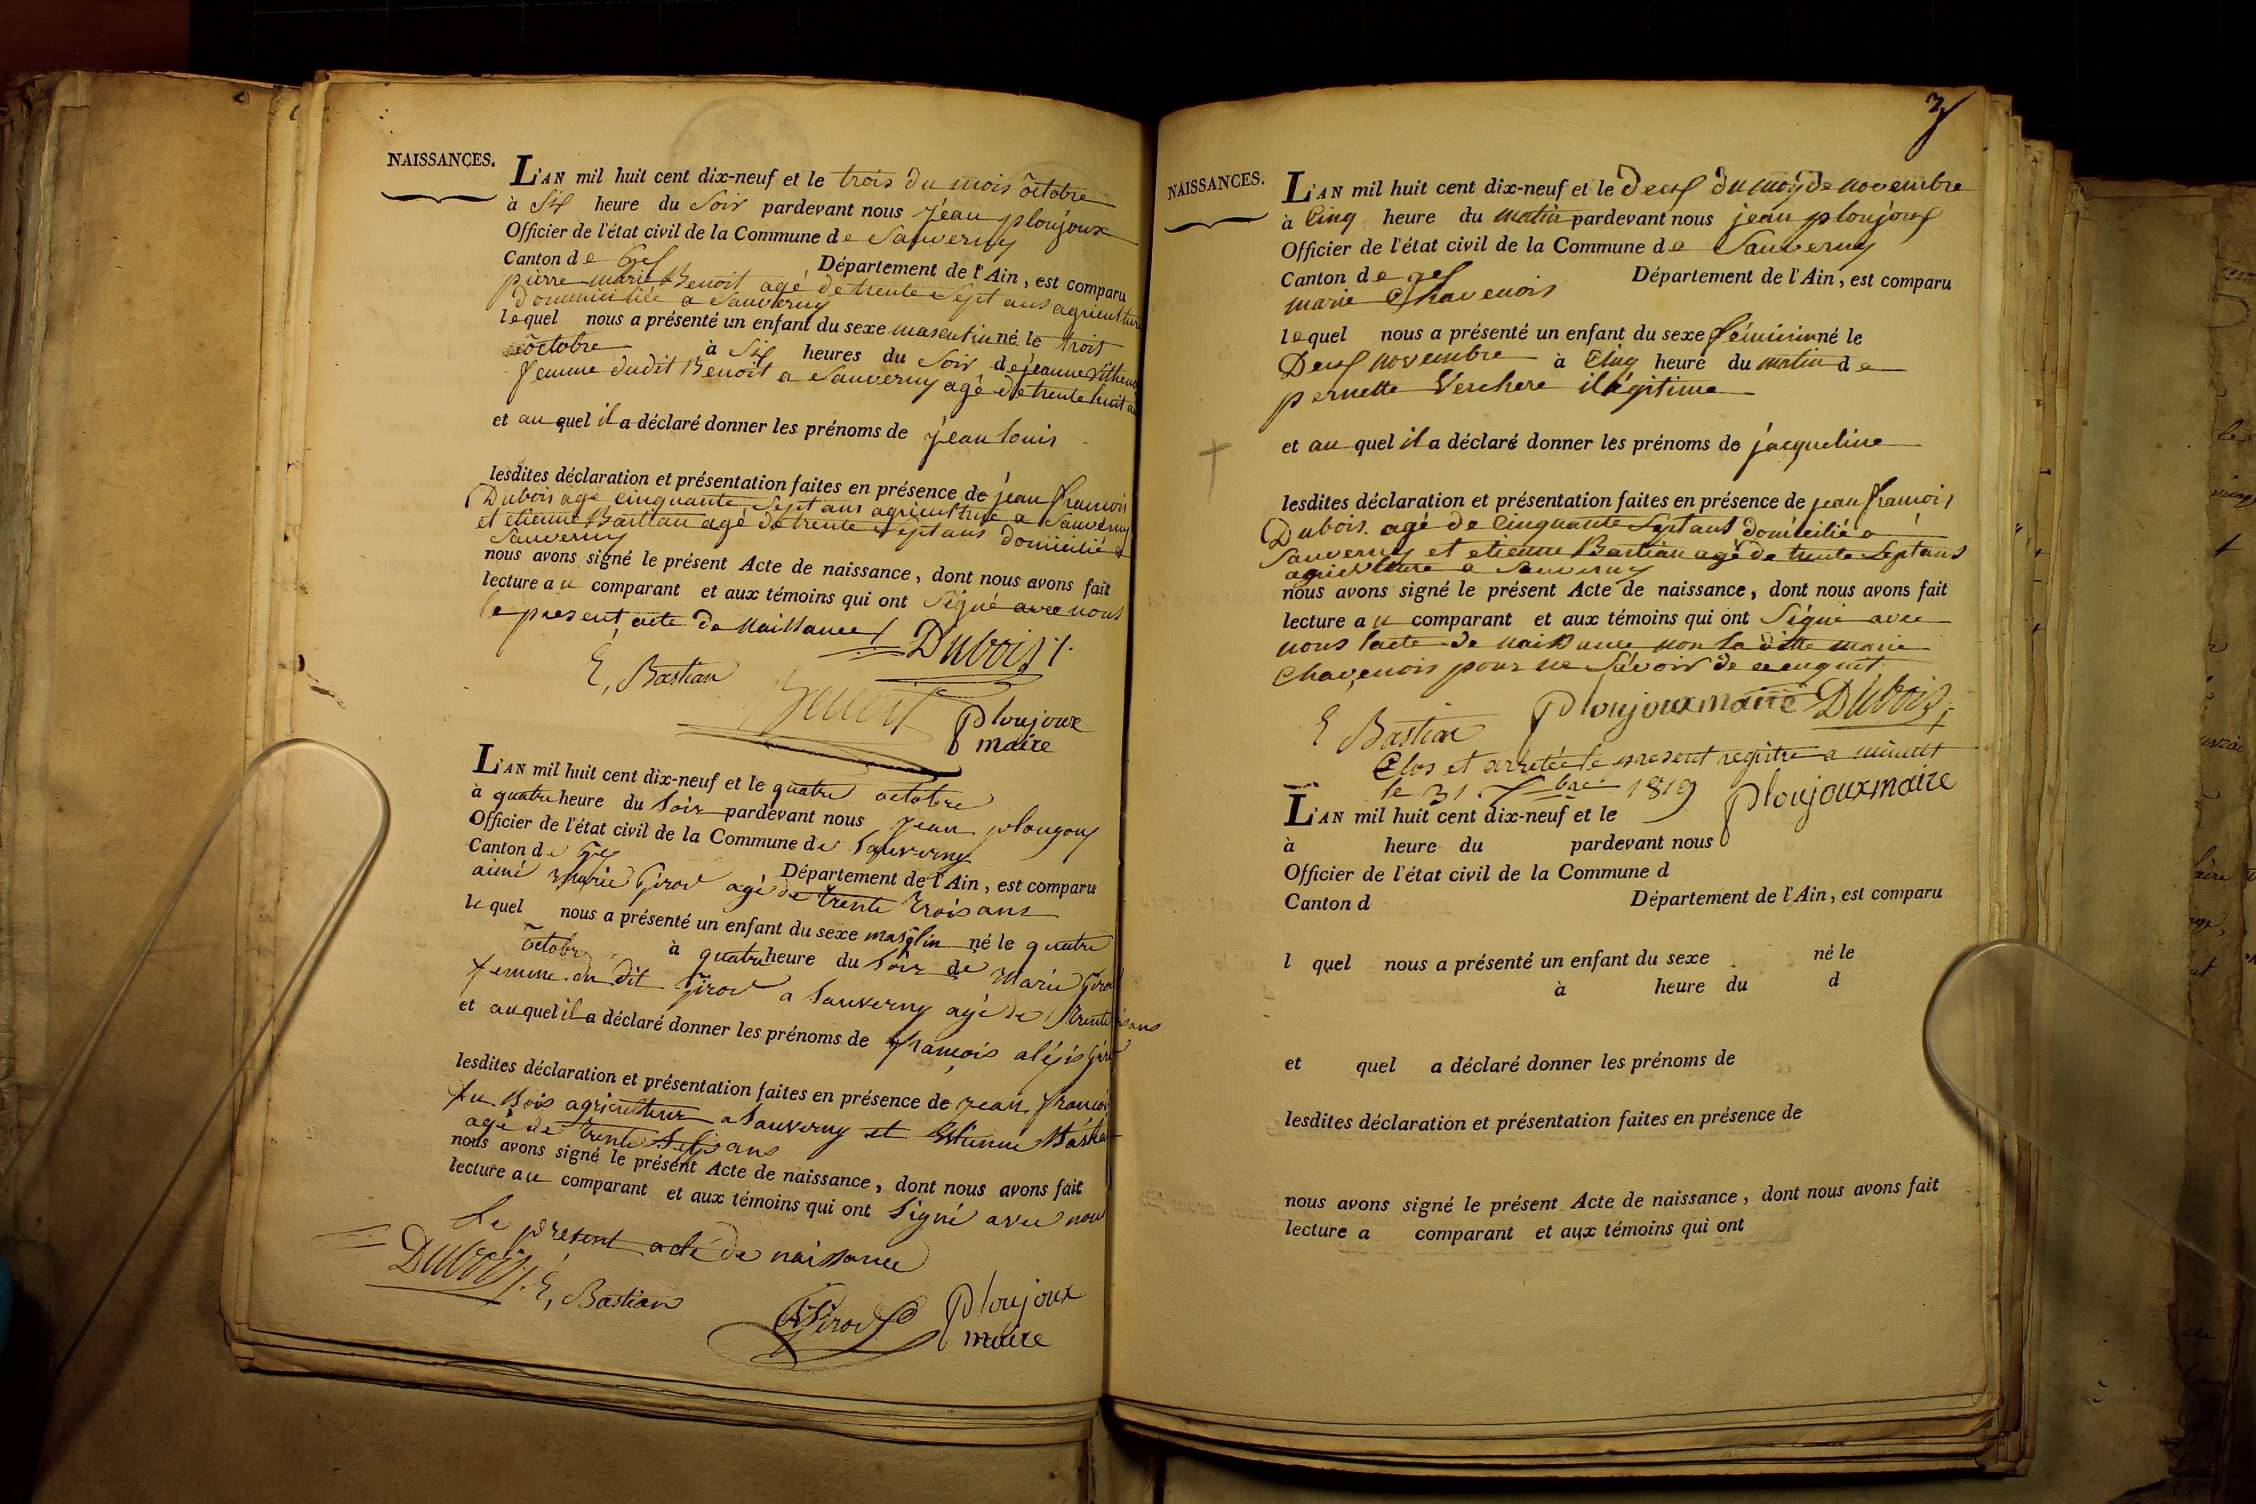 NAISSANCES.
L'AN mil huit cent dix-neuf et le trois du mois octobre
à Six heure du Soir pardevant nous jean ploujoux
Officier de l'état civil de la Commune de Sauverny
Canton de Gex Département de l'Ain, est comparu
pierre marie Benoit agé de trente Sept ans agriculture
dommiciliée a Sauverny
lequel nous a présenté un enfant du sexe masculin né le trois
octobre à Six heures du Soir, de jeanne
femme dudit Benoit a Sauverny agé de trente huit
et auquel il a déclaré donner les prénoms de jean louis
lesdites déclaration et présentation faites en présence de jean francois
Dubois agé cinquante Sept ans agriculture a Sauverny
et etienne Bastian agé de trente Sept ans domicilié a
Sauverny
nous avons signé le présent Acte de naissance, dont nous avons fait
lecture au comparant et aux témoins qui ont Signé avec nous
le present acte de Naissance
Dubois
E, Bastian
Benoit
Ploujoux
maire
L'AN mil huit cent dix-neuf et le quatre octobre
à quatre heure du Soir pardevant nous jean plougoux
Officier de l'état civil de la Commune de Sauverny
Canton de Gex Département de l'Ain, est comparu
aimé marie Girod agé de trente trois ans
lequel nous a présenté un enfant du sexe masqlin né le quatre
octobre à quatre heure du Soir de Marie
femme du dit Girod a Sauverny agé de trente ans
et auquel il a déclaré donner les prénoms de françois aléxis
lesdites déclaration et présentation faites en présence de jean
du Bois agriculteur a Sauverny et Etienne
agé de trente Sept ans
nous avons signé le présent Acte de naissance, dont nous avons fait
lecture au comparant et aux témoins qui ont Signé avec nou
Le présent acte de naissance
Dubois
E, Bastian
Girod
Ploujoux
maire
3
NAISSANCES.
L'AN mil huit cent dix-neuf et le Deux du moy de novembre
à Cinq heure du matin pardevant nous jean ploujoux
Officier de l'état civil de la Commune de Sauverny
Canton de gex Département de l'Ain, est comparu
marie Chavenois
lequel nous a présenté un enfant du sexe féminin né le
Deux novembre à Cinq heure du matin de
pernette Verchere illégitime
et auquel il a déclaré donner les prénoms de jacqueline
lesdites déclaration et présentation faites en présence de jean francois
Dubois. agé de Cinquante Sept ans domicilié a
Sauverny et etienne Bastian agé de trente Sept ans
agriculture a Sauverny
nous avons signé le présent Acte de naissance, dont nous avons fait
lecture au comparant et aux témoins qui ont Signé avec
nous l'acte de naissance non la ditte marie
Chavenois pour ne Savoir de ce enquit
E Bastian Ploujoux maire Dubois
Clos et arrêtée le present registre a minuit
le 31 bre 1819 Ploujoux maire
L'AN mil huit cent dix-neuf et le
à heure du pardevant nous
Officier de l'état civil de la Commune d
Canton d Département de l'Ain, est comparu
l quel nous a présenté un enfant du sexe né le
à heure du d
et quel a déclaré donner les prénoms de
lesdites déclaration et présentation faites en présence de
nous avons signé le présent Acte de naissance, dont nous avons fait
lecture a comparant et aux témoins qui ont